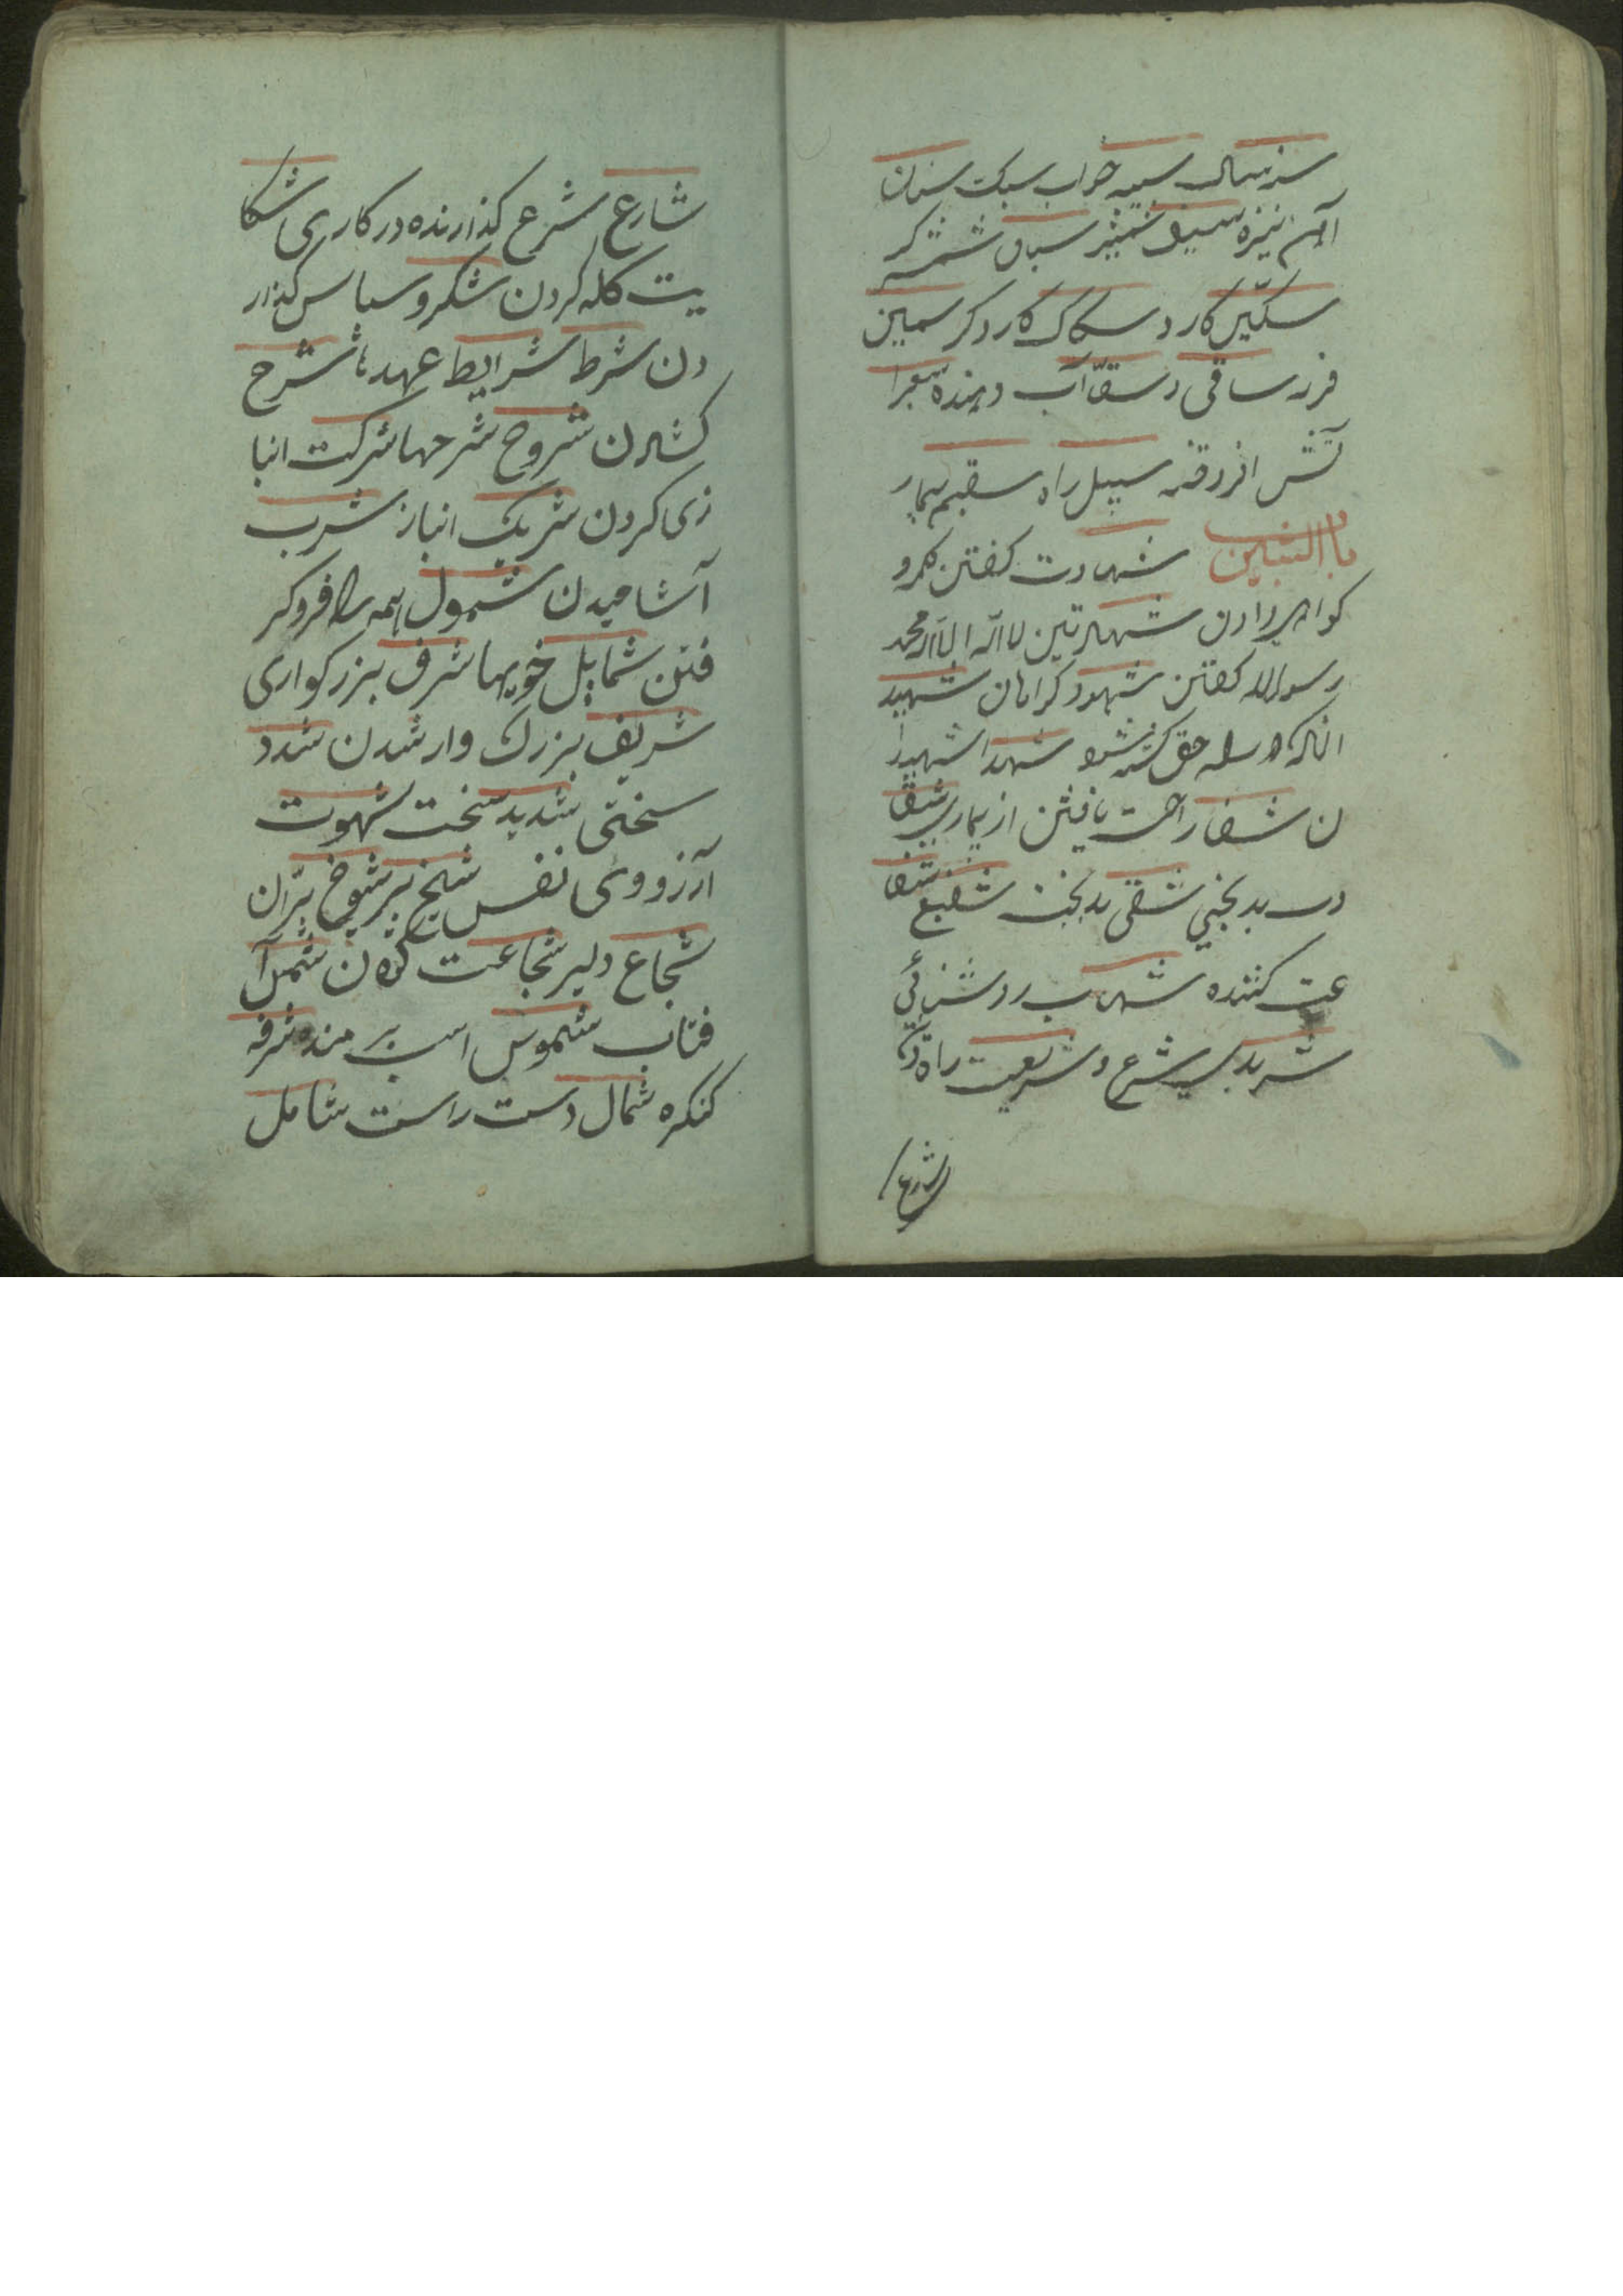 سنان
آهن نیزه سیف شمشیر سیاف شمشیر کر
سکّین کارد سکاک کارد کر سمین
فربه ساقی و سقّا آب دهنده سعرا
تش افروخته سبیل راه سقیم بیمار
باب الشین شهادت کفتن کلمه و
کواهی دادن شهادتین لا اله الا الله محمد
رسول الله کفتن شهود کواهان شهید
انکه در راه حق کشته شود شهدا شهیدا
ن شفا راحت یافتن از بیماری شقا
وت بدبختی شقی بدبخت شفیع شفا
عت کننده شهاب روشنائی
شرع و شریعت راه
شارع
شارع شرع کذارنده در کاری شکا
یت کله کردن شکر و سپاس کذار
دن شرط شرایط عهدها شرح
کشادن شروح شرحها شرکت انبا
زی کردن شریک انباز شرب
آشامیدن شمول همه را فروکر
فتن شمایل خویها شرف بزرکواری
شریف بزرك وار شدن شدد
سختی شدید سخت شهوت
آرزووی نفس شیخ پیر شیوخ پیران
شجاع دلیر شجاعت شمس آ
فتاب شموس اسب شرفه
کنکره شمال دست راست شامل